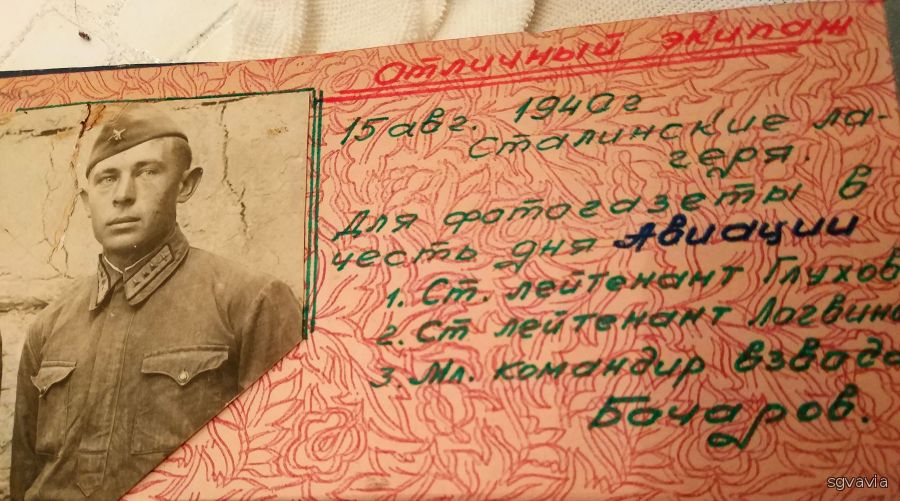 Отличный экипаж
15 авг. 1940 г
Сталинские ла-
геря.
Для фотогазеты в
честь дня Авиации
1. Ст. лейтенант Глухов
2. Ст лейтенант Логвин
3. Мл. командир взвода
Бочаров.
sgvavia